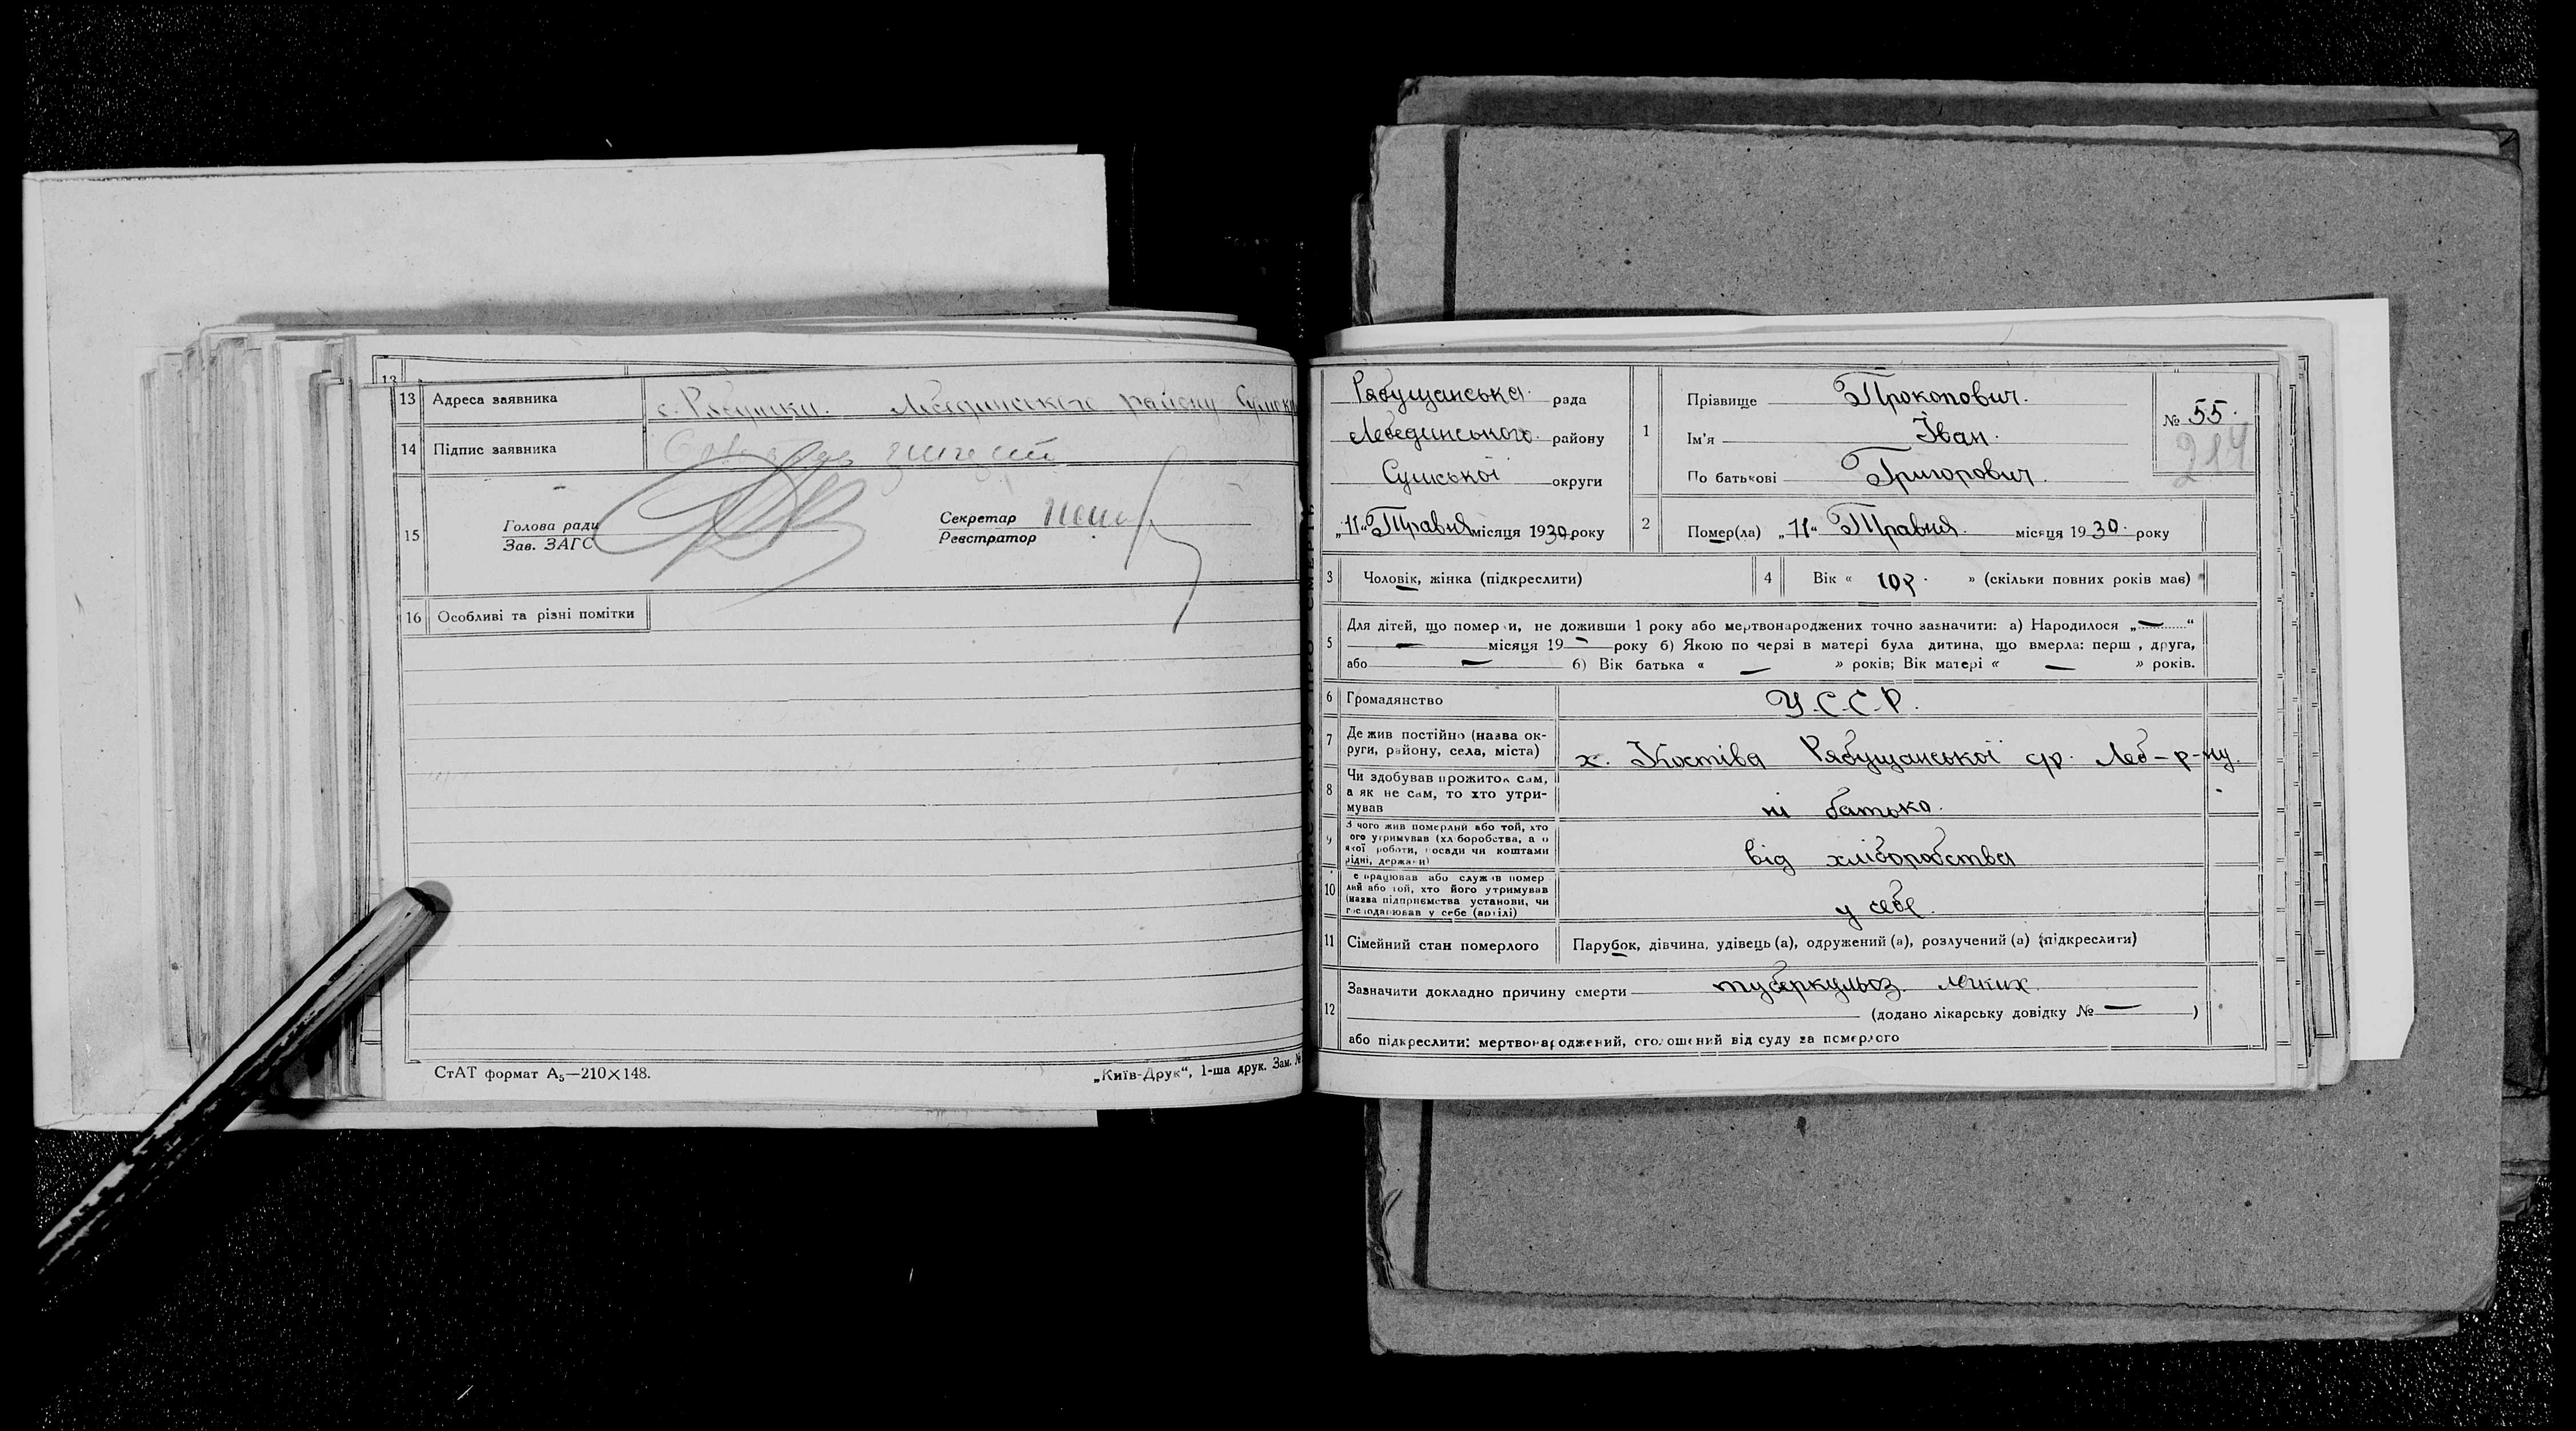 13
13 Адреса заявника с. Рябушки. Лебединського району Сумськ
14 Підпис заявника
15 Голова ради
Зав. ЗАГС
Секретар
Реєстратор
16 Особливі та різні помітки
СтАТ формат А₅—210×148.
„Київ-Друк“, 1-ша друк. Зам. №
Рябущанська рада
Лебединського району
Сумської округи
„11“ Травня місяця 1930 року
1 Прізвище Прокопович.
Ім'я Іван.
По батькові Григорович.
№ 55.
214
2 Помер(ла) „11“ Травня. місяця 1930. року
3 Чоловік, жінка (підкреслити)
4 Вік « 10р. » (скільки повних років мав)
5 Для дітей, що померли, не доживши 1 року або мертвонароджених точно зазначити: а) Народилося „—“
— місяця 19— року б) Якою по черзі в матері була дитина, що вмерла: перш , друга,
або — б) Вік батька « — » років; Вік матері « — » років.
6 Громадянство У.С.С.Р.
7 Де жив постійно (назва округи, району, села, міста) х. Костіва Рябущанської с/р. Леб-р-ну.
8 Чи здобував прожиток сам,
а як не сам, то хто утримував ні батько.
9 З чого жив померлий або той, хто
його утримував (хліборобства, а о
якої роботи, посади чи коштами
рідні, держави) від хліборобства
10 е працював або служив помер
лий або той, хто його утримував
(назва підприємства установи, чи
господарював у себе (артілі) у себе.
11 Сімейний стан померлого Парубок, дівчина, удівець (а), одружений (а), розлучений (а) (підкреслити)
12 Зазначити докладно причину смерти туберкульоз легких.
(додано лікарську довідку № — )
або підкреслити: мертвонароджений, оголошений від суду за померлого